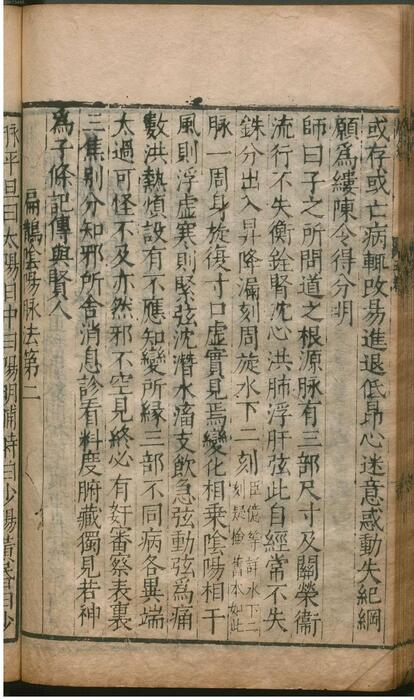 或存或亡病輒改易進退低昂心迷意惑動失紀綱
願爲縷陳令得分明
師曰子之所問道之根源脉有三部尺寸及關榮衛
流行不失衡銓腎沈心洪肺浮肝弦此自經常不失
銖分出入昇降漏刻周旋水下二刻臣億等詳水下二刻疑檢舊本如此
脉一周身旋復寸口虛實見焉變化相乗陰陽相干
風則浮虛寒則緊弦沈潛水滀支飲急弦動弦爲痛
數洪熱煩設有不應知變所緣三部不同病各異端
太過可怪不及亦然邪不空見終必有奸審察表裏
三焦别分知邪所舍消息診看料度腑藏獨見若神
爲子條記傳與賢人
扁鵲陰陽脉法第二
脉平旦曰太陽日中曰陽明晡時曰少陽黄昏曰少